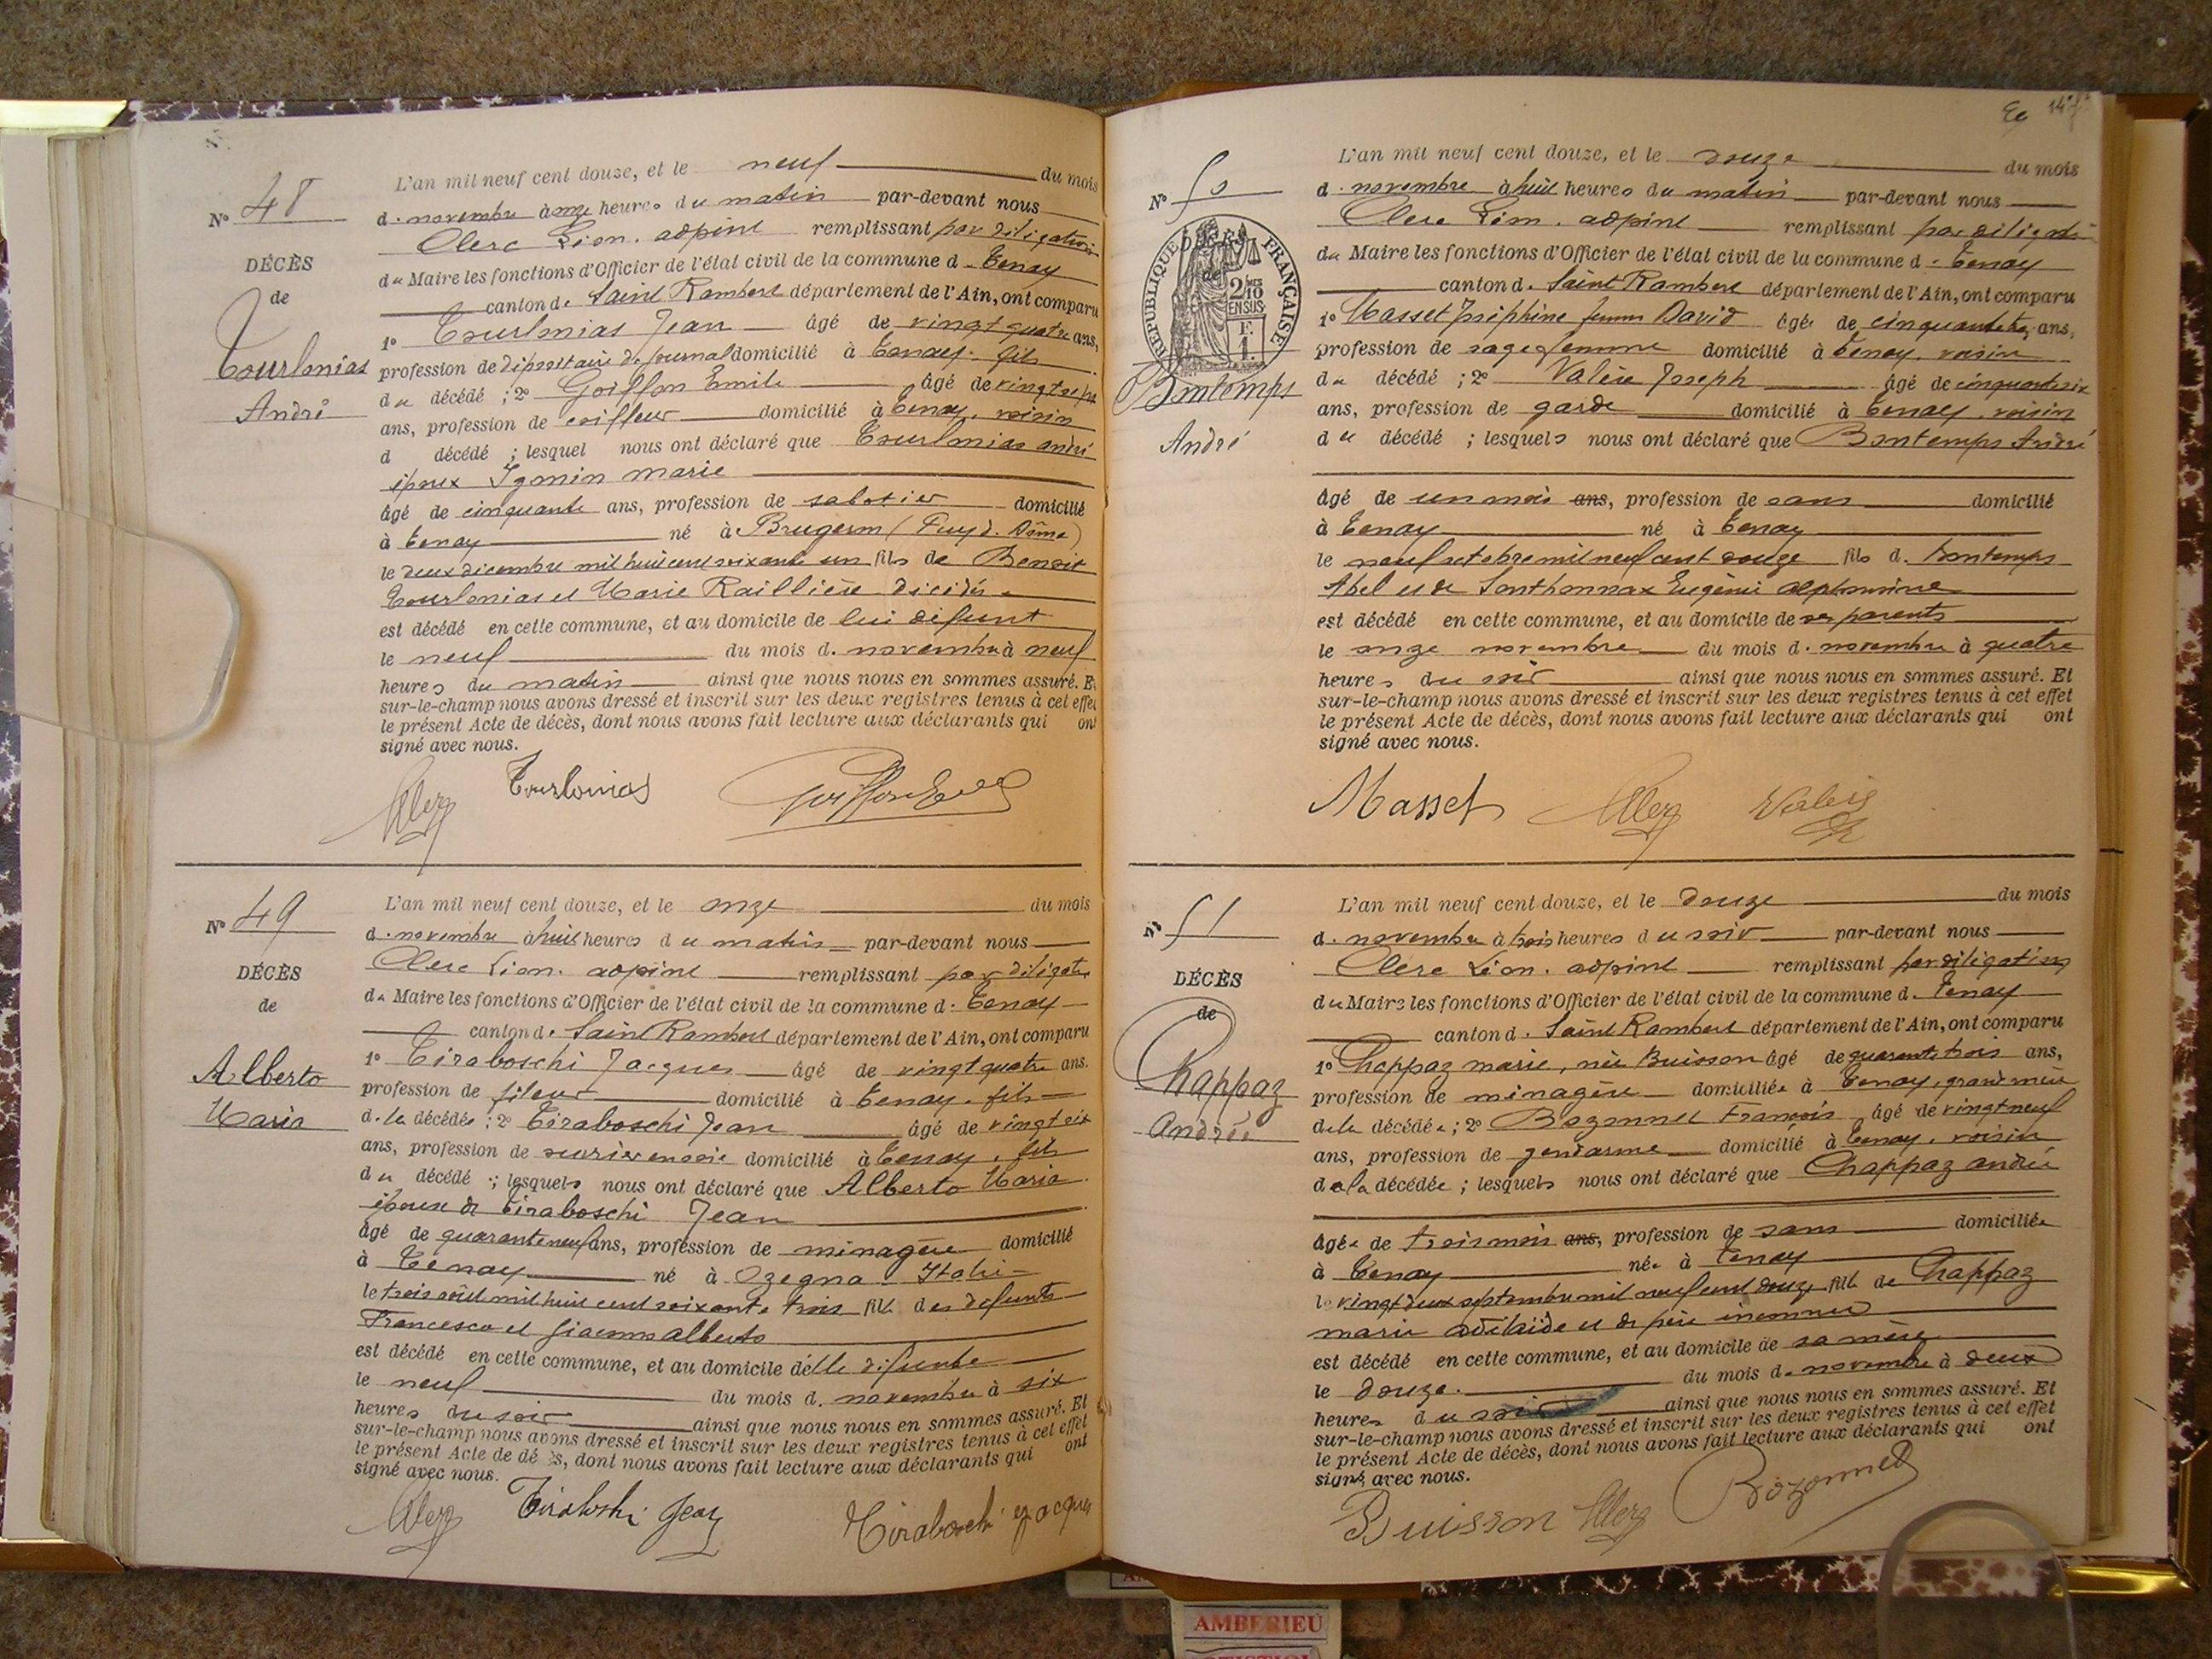 N° 48
DÉCÈS
de
Tourlonias
André
L'an mil neuf cent douze, et le neuf du mois
d. novembre à onze heures du matin par-devant nous
Clerc Léon. adjoint remplissant par délégation
du Maire les fonctions d'Officier de l'état civil de la commune d. Tenay
canton d. Saint Rambert département de l'Ain, ont comparu
1° Tourlonias Jean âgé de vingt quatre ans,
profession de dépositaire de journal domicilié à Tenay. fils
du décédé ; 2° Goiffon Emile âgé de vingt sept
ans, profession de coiffeur domicilié à Tenay. voisin
d décédé ; lesquel nous ont déclaré que Tourlonias andré
époux Igonin marie
âgé de cinquante ans, profession de sabotier domicilié
à Tenay né à Brugeron (Puy d. Dôme)
le deux décembre mil huit cent soixante un fils de Benoit
Tourlonias et Marie Raillière décédés
est décédé en cette commune, et au domicile de lui défunt
le neuf du mois d. novembre à neuf
heures du matin ainsi que nous nous en sommes assuré. Et
sur-le-champ nous avons dressé et inscrit sur les deux registres tenus à cet effet
le présent Acte de décès, dont nous avons fait lecture aux déclarants qui ont
signé avec nous.
Clerc Tourlonias Goiffon
N° 49
DÉCÈS
de
Alberto
Maria
L'an mil neuf cent douze, et le onze du mois
d. novembre à huit heures du matin par-devant nous
Clerc Léon. adjoint remplissant par délégation
du Maire les fonctions d'Officier de l'état civil de la commune d. Tenay
canton d. Saint Rambert département de l'Ain, ont comparu
1° Tiraboschi Jacques âgé de vingt quatre ans.
profession de fileur domicilié à Tenay. fils
d. la décédée ; 2° Tiraboschi Jean âgé de vingt six
ans, profession de domicilié à Tenay. fils
du décédé ; lesquels nous ont déclaré que Alberto Maria
épouse de Tiraboschi Jean
âgé de quarante neuf ans, profession de ménagère domicilié
à Tenay né à Ozegna. Italie
le trois août mil huit cent soixante trois fill. des défunts
Francesco et Giacomo Alberto
est décédé en cette commune, et au domicile d'elle défunte
le neuf du mois d. novembre à six
heures du soir ainsi que nous nous en sommes assuré. Et
sur-le-champ nous avons dressé et inscrit sur les deux registres tenus à cet effet
le présent Acte de décès, dont nous avons fait lecture aux déclarants qui ont
signé avec nous.
Clerc Tiraboschi Jean Tiraboschi Jacques
N° 50
RÉPUBLIQUE FRANÇAISE
2/10 EN SUS
F. 1.
de
Bontemps
André
L'an mil neuf cent douze, et le douze du mois
d. novembre à huit heures du matin par-devant nous
Clerc Léon. adjoint remplissant par délégati
du Maire les fonctions d'Officier de l'état civil de la commune d. Tenay
canton d. Saint Rambert département de l'Ain, ont comparu
1° Masset Joséphine femme David âgée de ans,
profession de sage femme domicilié à Tenay, voisine
du décédé ; 2° Valère Joseph âgé de cinquante six
ans, profession de garde domicilié à Tenay. voisin
du décédé ; lesquels nous ont déclaré que Bontemps André
âgé de un mois ans, profession de sans domicilié
à Tenay né à Tenay
le neuf octobre mil neuf cent douze fils d. Bontemps
Abel et de Santhonnax Eugénie Alphonsine
est décédé en cette commune, et au domicile de ses parents
le onze novembre du mois d. novembre à quatre
heures du soir ainsi que nous nous en sommes assuré. Et
sur-le-champ nous avons dressé et inscrit sur les deux registres tenus à cet effet
le présent Acte de décès, dont nous avons fait lecture aux déclarants qui ont
signé avec nous.
Masset Clerc Valère
N° 51
DÉCÈS
de
Chappaz
Andrée
L'an mil neuf cent douze, et le douze du mois
d. novembre à trois heures du soir par-devant nous
Clerc Léon. adjoint remplissant par délégation
du Maire les fonctions d'Officier de l'état civil de la commune d. Tenay
canton d. Saint Rambert département de l'Ain, ont comparu
1° Chappaz marie, née Buisson âgé de quarante trois ans,
profession de ménagère domiciliée à Tenay, grand mère
de la décédée ; 2° Bozonnet François âgé de vingt neuf
ans, profession de gendarme domicilié à Tenay. voisin
de la décédée ; lesquels nous ont déclaré que Chappaz andrée
âgée de trois mois ans, profession de sans domiciliée
à Tenay née à Tenay
le vingt deux septembre mil neuf cent douze fille de Chappaz
marie adélaïde et de père inconnu
est décédé en cette commune, et au domicile de sa mère
le douze. du mois d. novembre à deux
heures du soir ainsi que nous nous en sommes assuré. Et
sur-le-champ nous avons dressé et inscrit sur les deux registres tenus à cet effet
le présent Acte de décès, dont nous avons fait lecture aux déclarants qui ont
signé avec nous.
Buisson Clerc Bozonnet
AMBERIEU